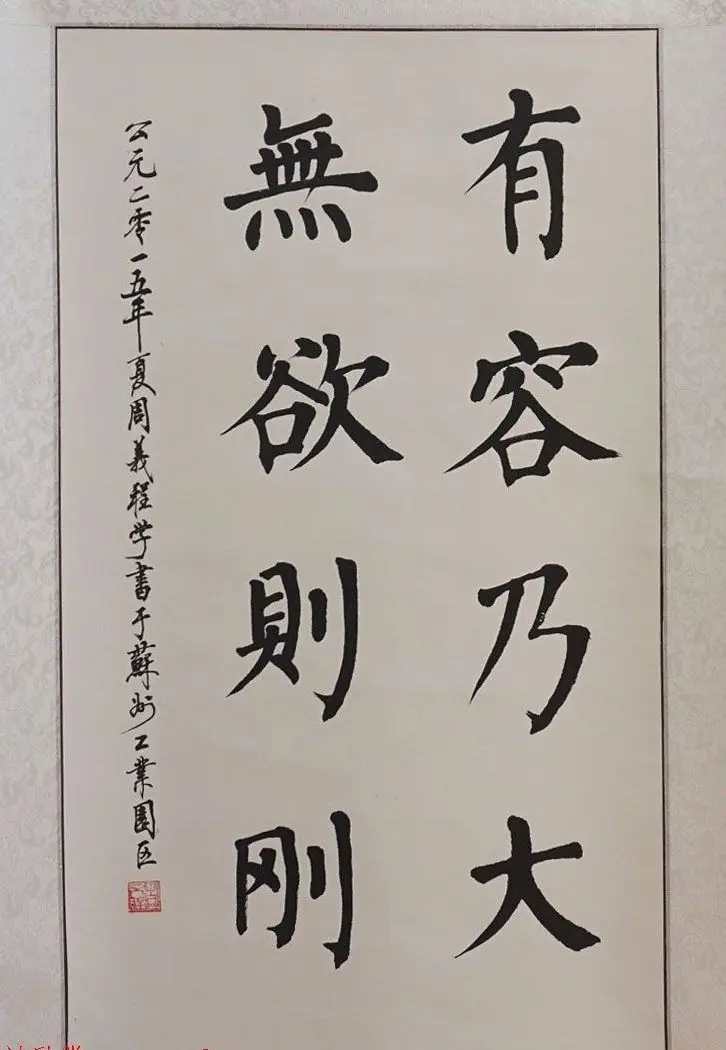 有容乃大
無欲則刚
公元二零一五年夏周義程学書于蘇州工業園区